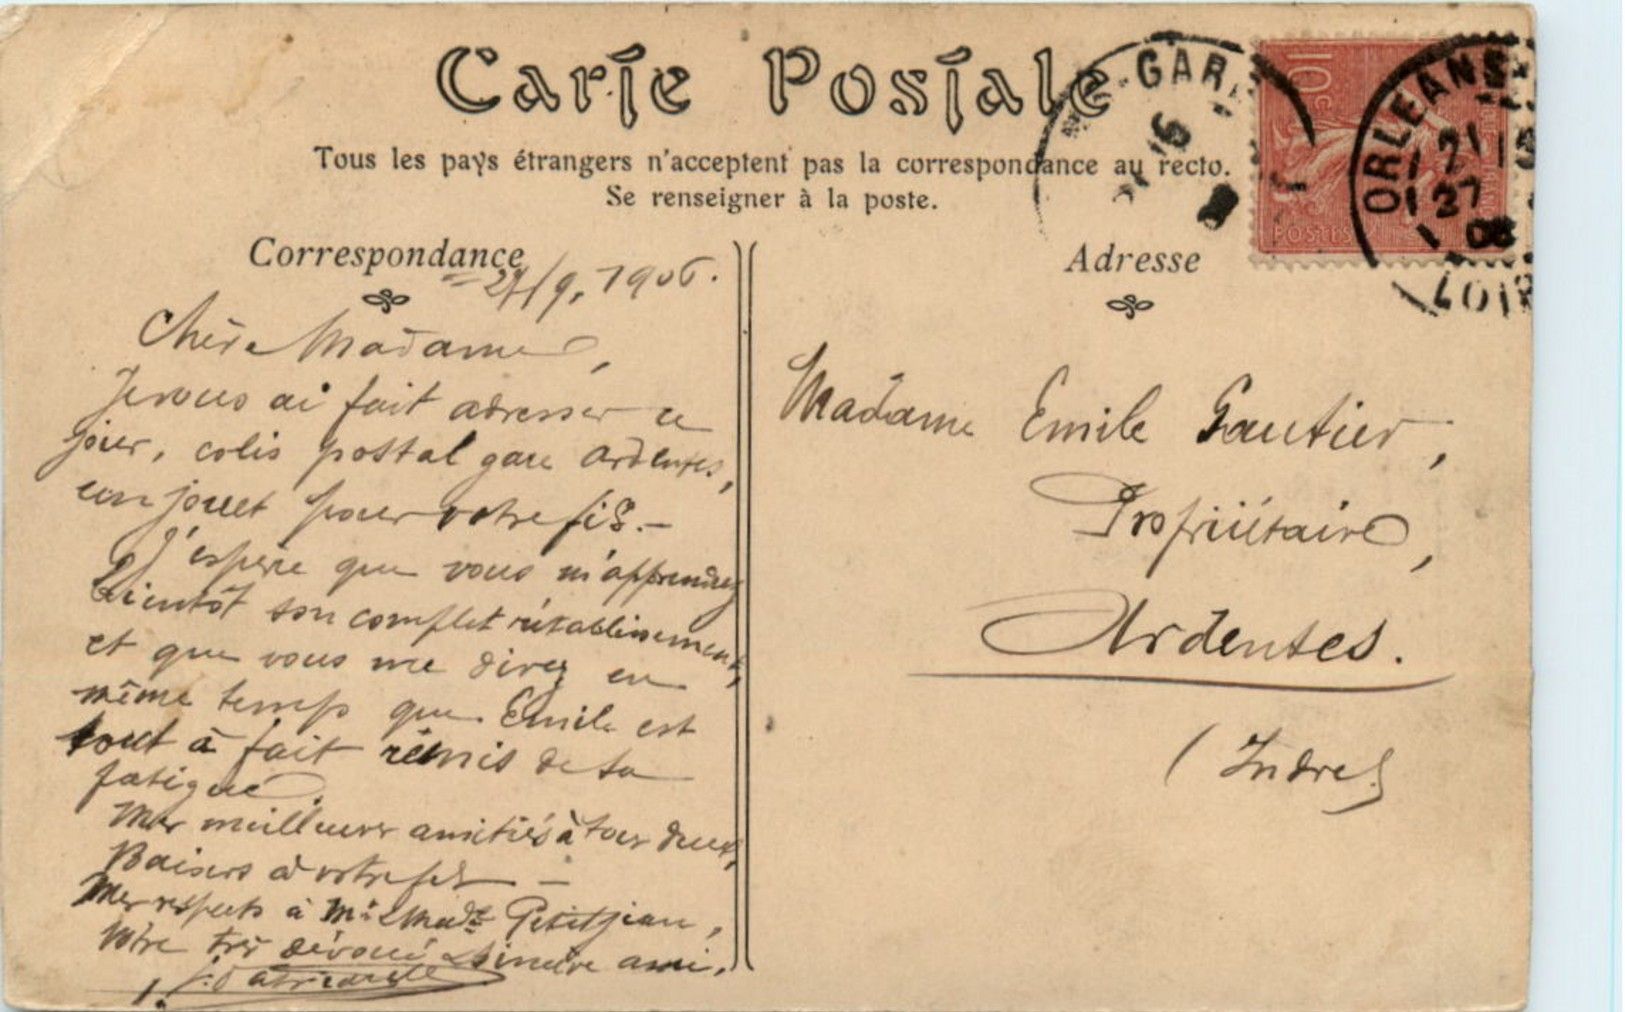 Carte Postale
Tous les pays étrangers n'acceptent pas la correspondance au recto.
Se renseigner à la poste.
Correspondance
27/9, 1906.
Chère Madame,
Je vous ai fait adresser ce
jour, colis postal gare Ardentes,
un jouet pour votre fils.-
J'espère que vous m'apprendrez
bientôt son complet rétablissement,
et que vous me direz en
même temps que Emile est
tout à fait rémis de sa
fatigue.
Mes meilleures amitiés à tous deux,
Baisers à votre fils -
Mes respects à Mr & Made Petitjean,
Votre très dévoué & sincère ami,
Adresse
Madame Emile Gautier,
Propriétaire,
Ardentes.
(Indre)
GARE
10c
POSTES
ORLEANS
21
27
06
LOIR